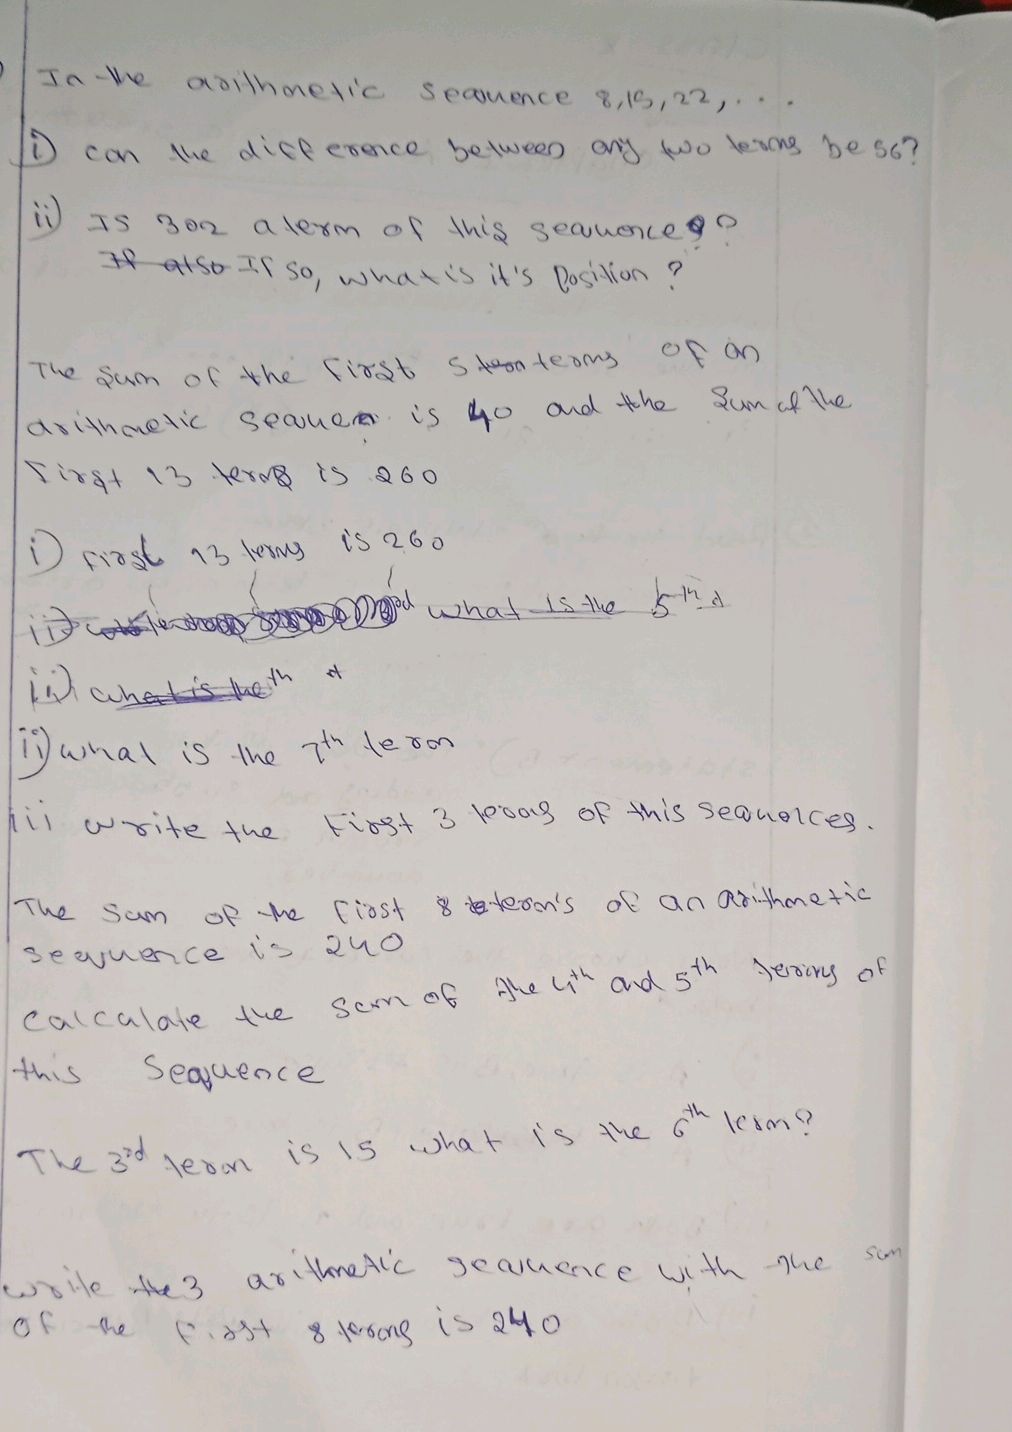 In the arithmetic sequence 8,15,22,...
i) can the difference between any two terms be 56?
ii) Is 302 a term of this sequence?
If also If so, what is it's Position?
The sum of the first 5 terms of an
arithmetic sequen is 40 and the sum of the
First 13 terms is 260
i) First 13 terms is 260
ii) what is the 5th
ii) what is the th
ii) what is the 7th term
iii write the First 3 terms of this sequences.
The sum of the first 8 term's of an arithmetic
sequence is 240
calculate the sum of the 4th and 5th terms of
this Sequence
The 3rd term is 15 what is the 6th term?
write the 3 arithmetic sequence with the sum
of the first 8 terms is 240